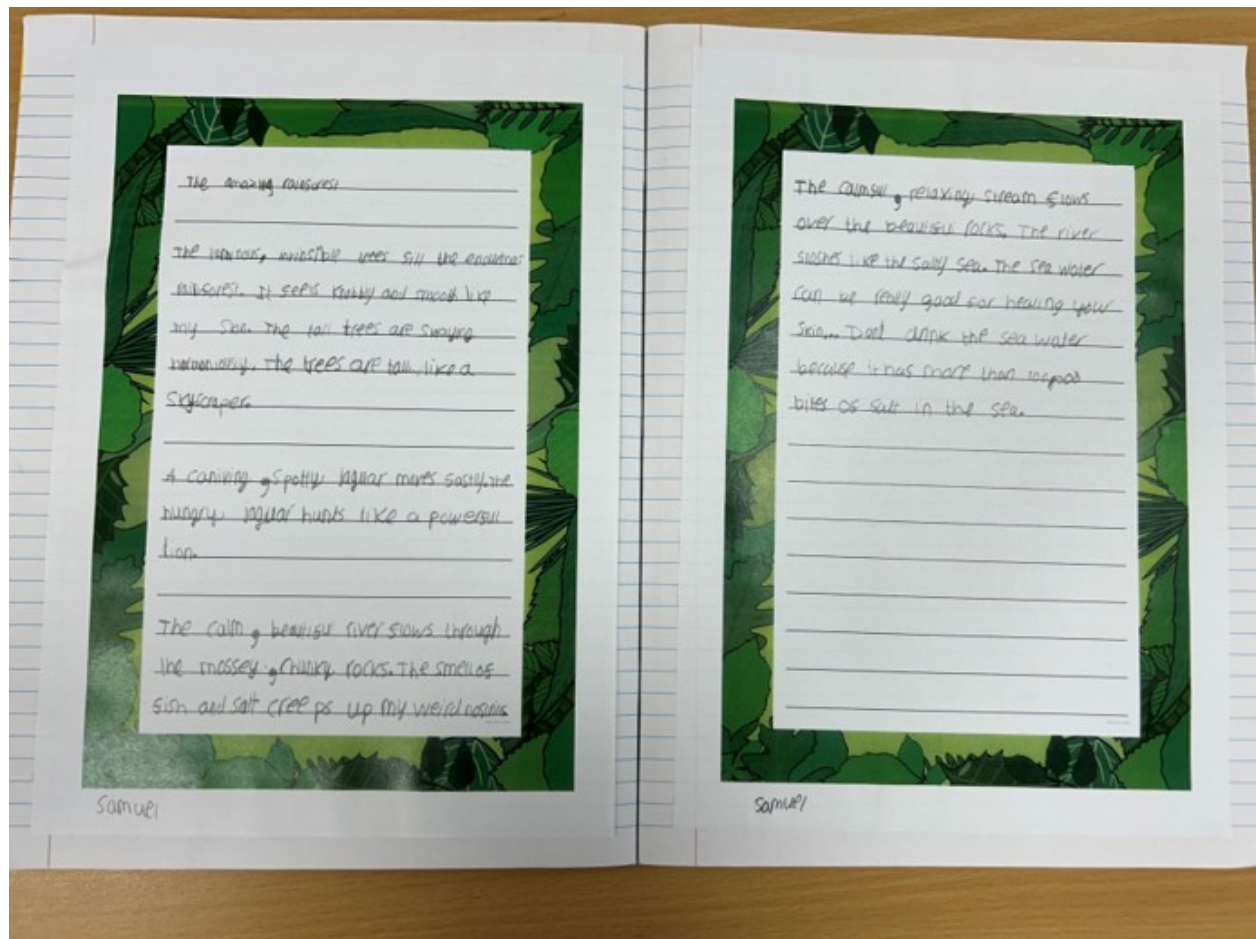 The amazing rainforest
The luminous, invinsible trees fill the enourmos
rainforest. It feels knobbly and smooth like
my skin. The tall trees are swaying
harmoniously. The trees are tall, like a
skyscraper.
A caniving, spotty jaguar moves fastly. The
hungry, jaguar hunts like a powerful
lion.
The calm, beautiful river flows through
the mossey, chunky rocks. The smell of
fish and salt creeps up my weird
Samuel
The calmful, relaxing stream flows
over the beautiful rocks. The river
sloshes like the salty sea. The sea water
can be really good for healing your
skin... Dont drink the sea water
because it has more than
bites of salt in the sea.
Samuel